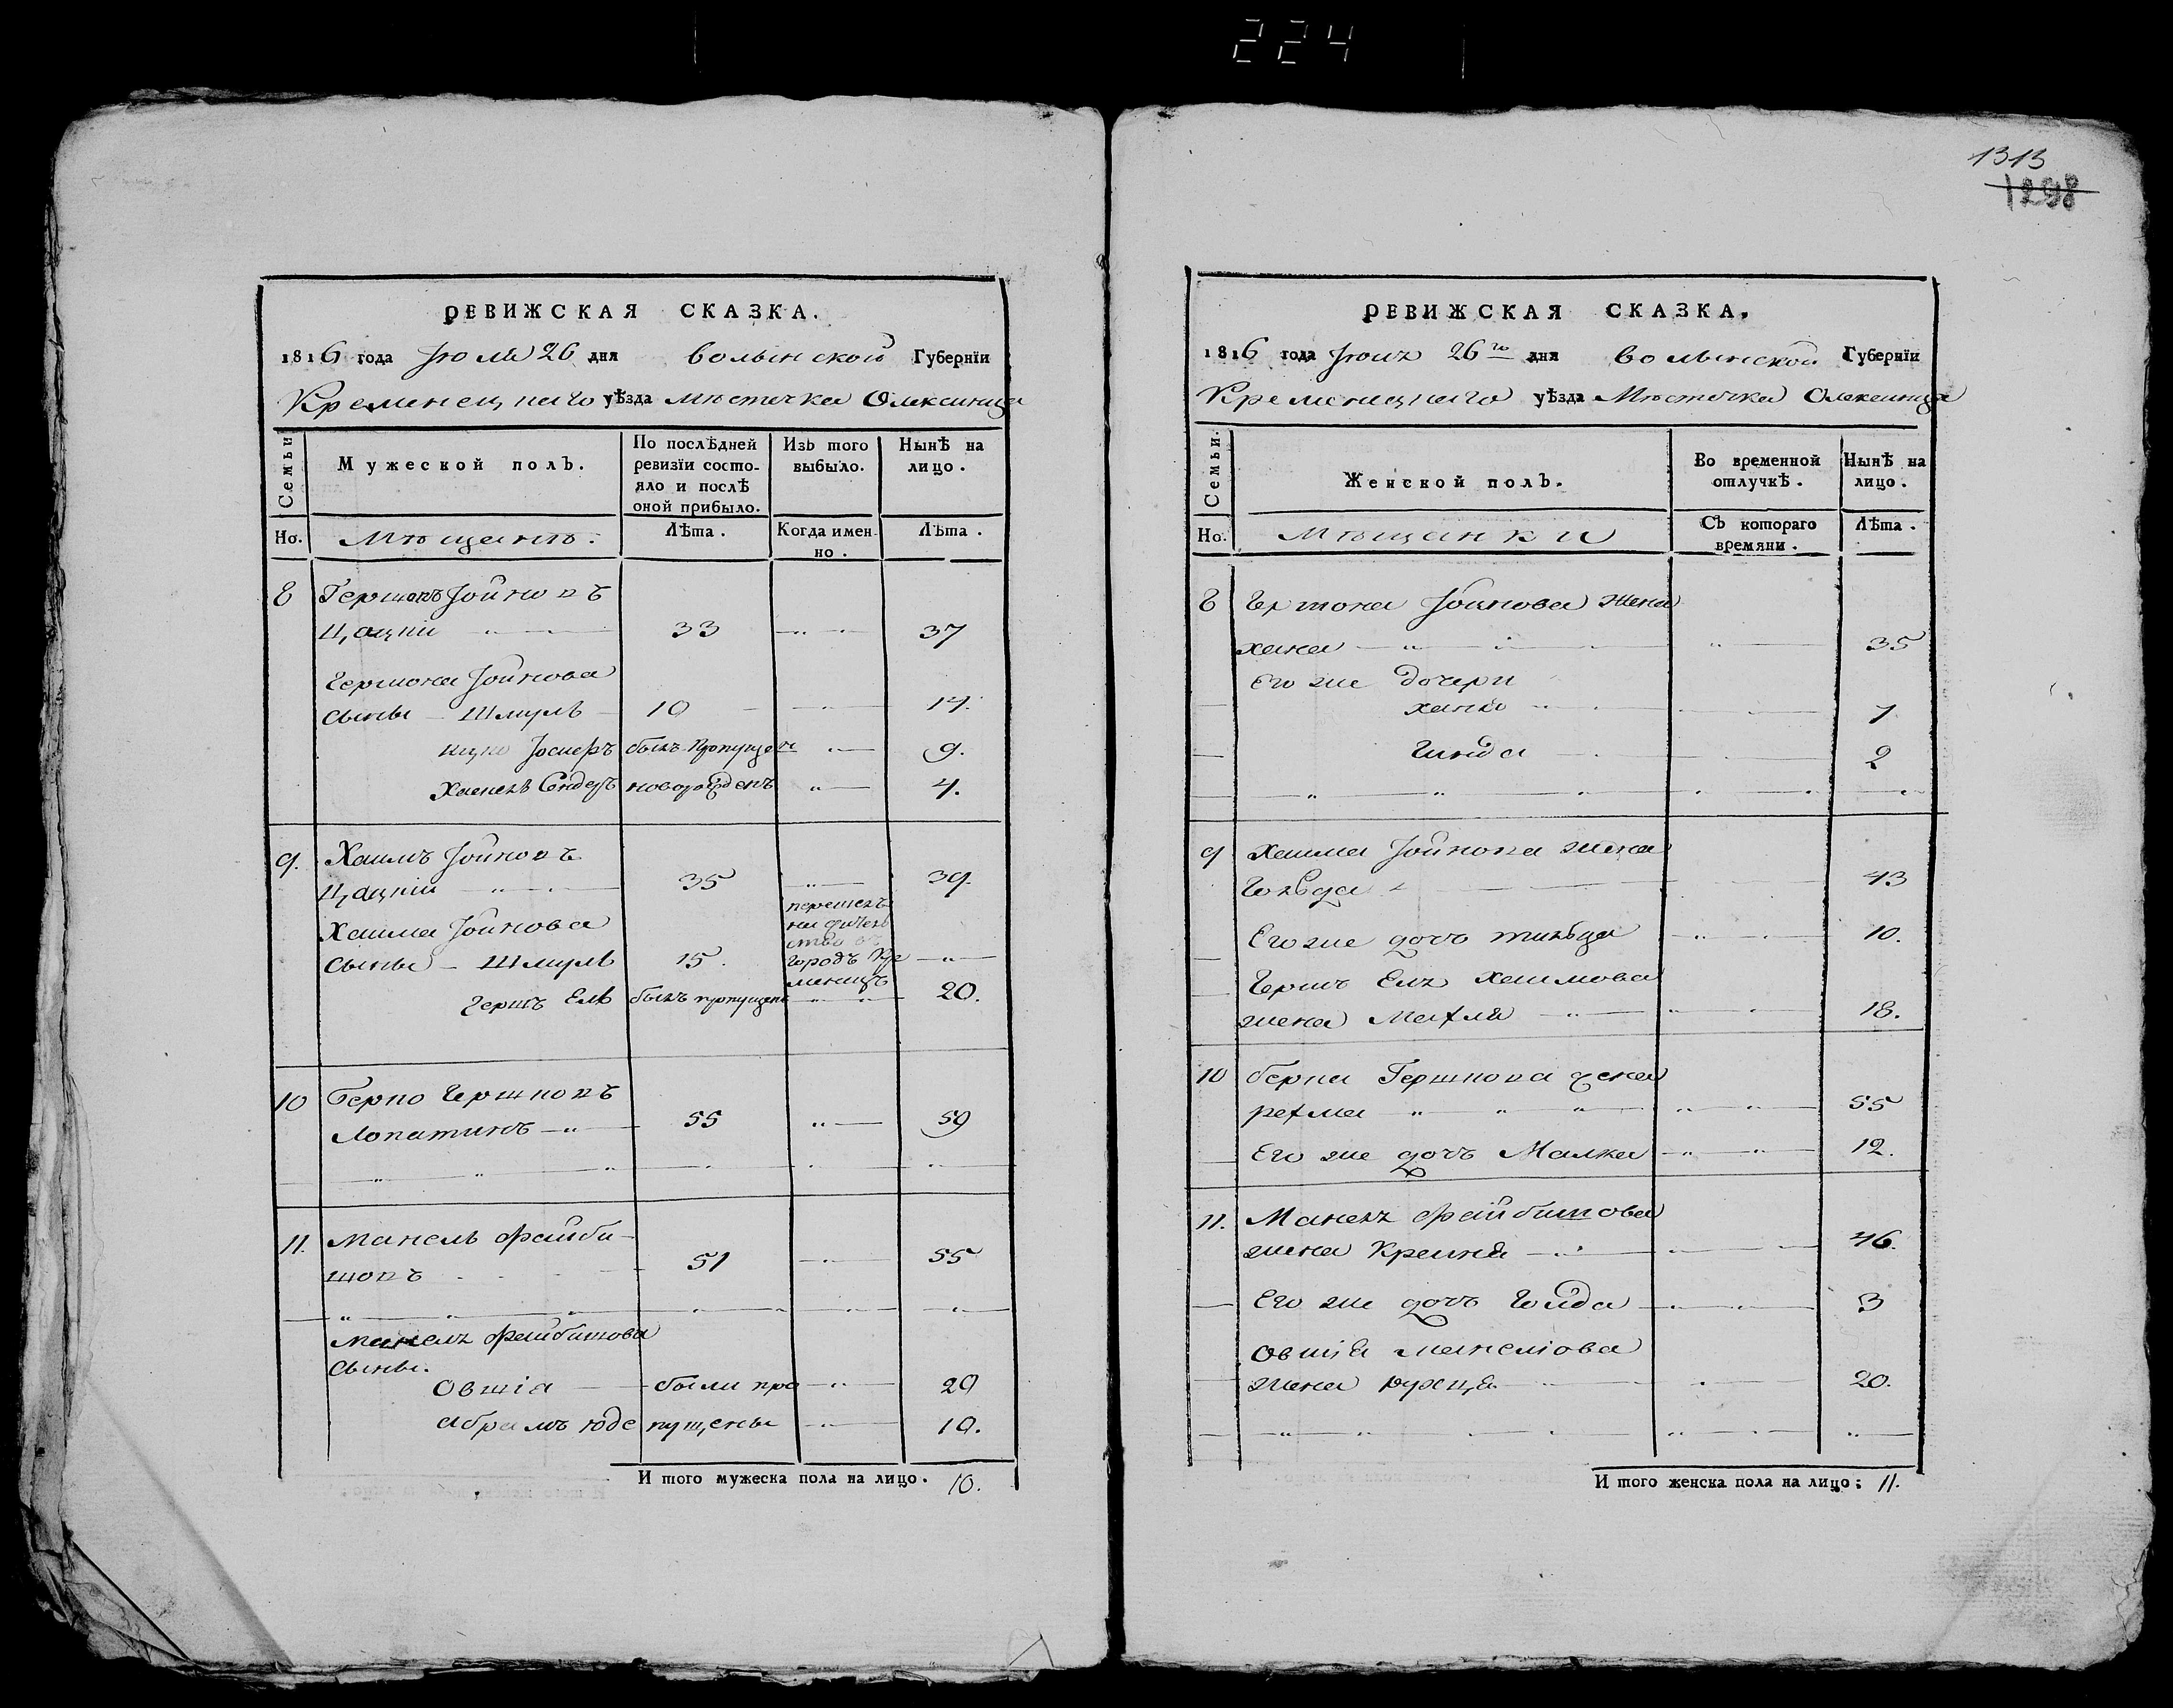 224
1313
1298
РЕВИЖСКАЯ СКАЗКА.
1816 года Июля 26 дня волынской Губернїи
Кременецкаго уѣзда мѣстечка Олексинца
Семьи
Мужеской полъ.
По послѣдней ревизїи состояло и послѣ оной прибыло.
Изъ того выбыло.
Нынѣ на лицо.
Но.
Мѣщанъ.
Лѣта.
Когда именно.
Лѣта.
8 Гершонъ Іойновъ
33 37
Гершона Іойнова
сыны Шмуль 10 14.
Іосиеръ былъ пропущен 9.
Сендеръ новорожденъ 4.
9. Хаимъ Іойновъ
35 39.
Хаима Іойнова
сыны Шмуль 15.
перешелъ
на жительство въ
городъ Кременецъ
Гершъ Ель былъ пропущенъ 20.
10 Берко Гершковъ
Лопатинъ 55 59
11. Манель Файбишовъ 51 55
Манеля Файбишова
сыны.
Овшіа были про 29
Абрамъ Юде пущены 10.
И того мужеска пола на лицо. 10.
РЕВИЖСКАЯ СКАЗКА.
1816 года Іюля 26го дня волынской Губернїи
Кременецкаго уѣзда Мѣстечка Олексинца
Семьи.
Женской полъ.
Во временной отлучкѣ.
Нынѣ на лицо.
Но.
Мѣщанки
Съ котораго времяни.
Лѣта.
8 Гершона Іойнова жена
хана 35
Его же дочери
7
Гинда 2
9 Хаима Іойнова жена
43
Его же дочь 10.
Гершъ Еля Хаимова
жена 18.
10 Берка Гершкова жена
55
Его же дочь Малка 12.
11. Манеля Файбишова
жена Крейня 46.
Его же дочь 3
Овшіа Манеліова
жена 20.
И того женска пола на лицо: 11.